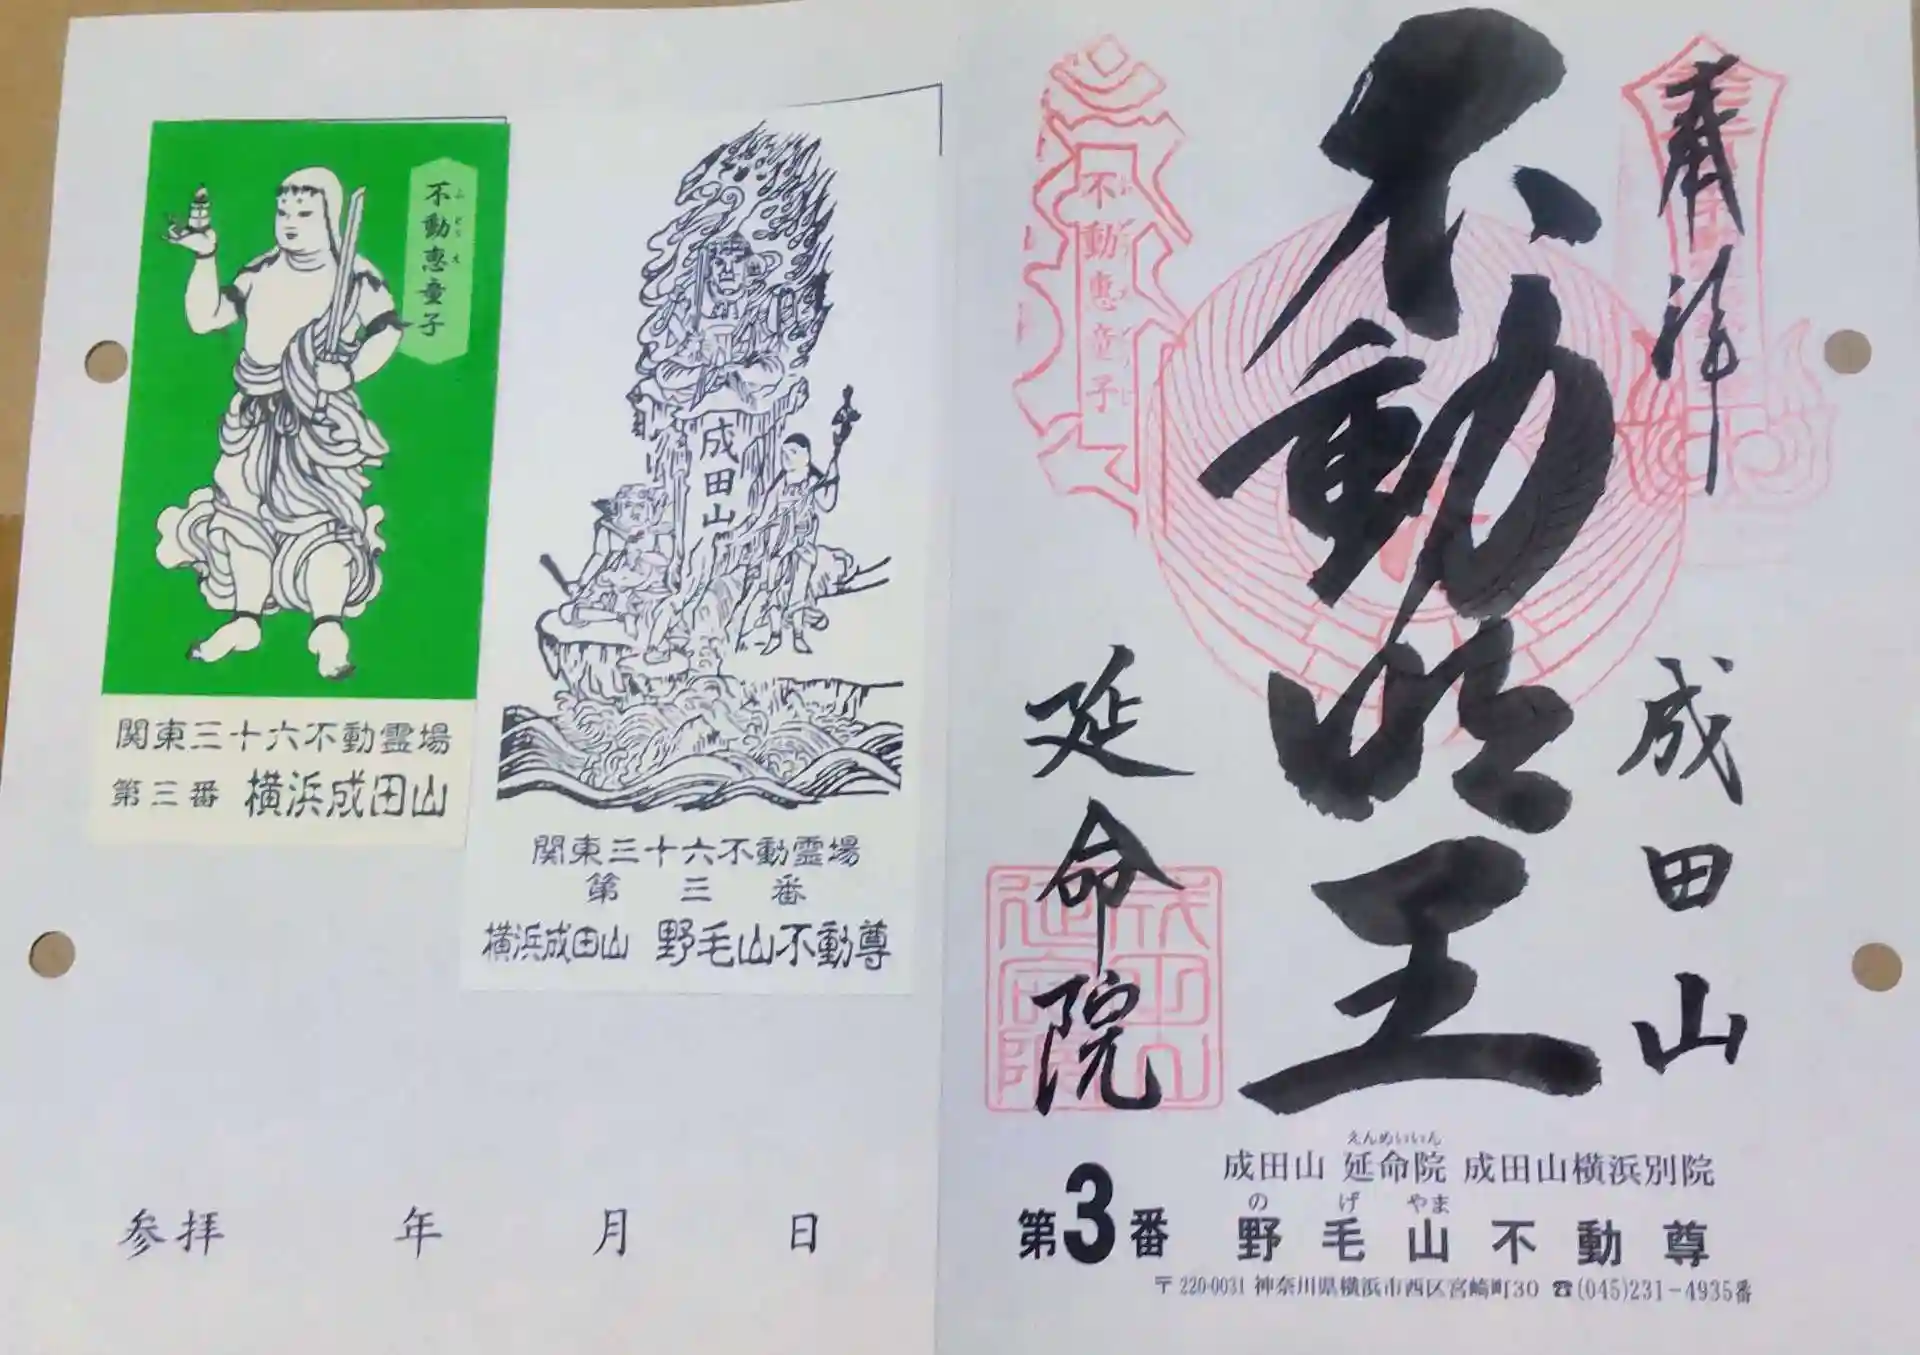 奉拝
不動明王
成田山
延命院
不動惠童子
成田山
延命院
えんめいいん
成田山 延命院 成田山横浜別院
のげやま
第3番 野毛山不動尊
〒220-0031 神奈川県横浜市西区宮崎町30 ☎(045)231-4935番
成田山
関東三十六不動霊場
第三番
横浜成田山 野毛山不動尊
不動惠童子
関東三十六不動霊場
第三番 横浜成田山
参拝 年 月 日